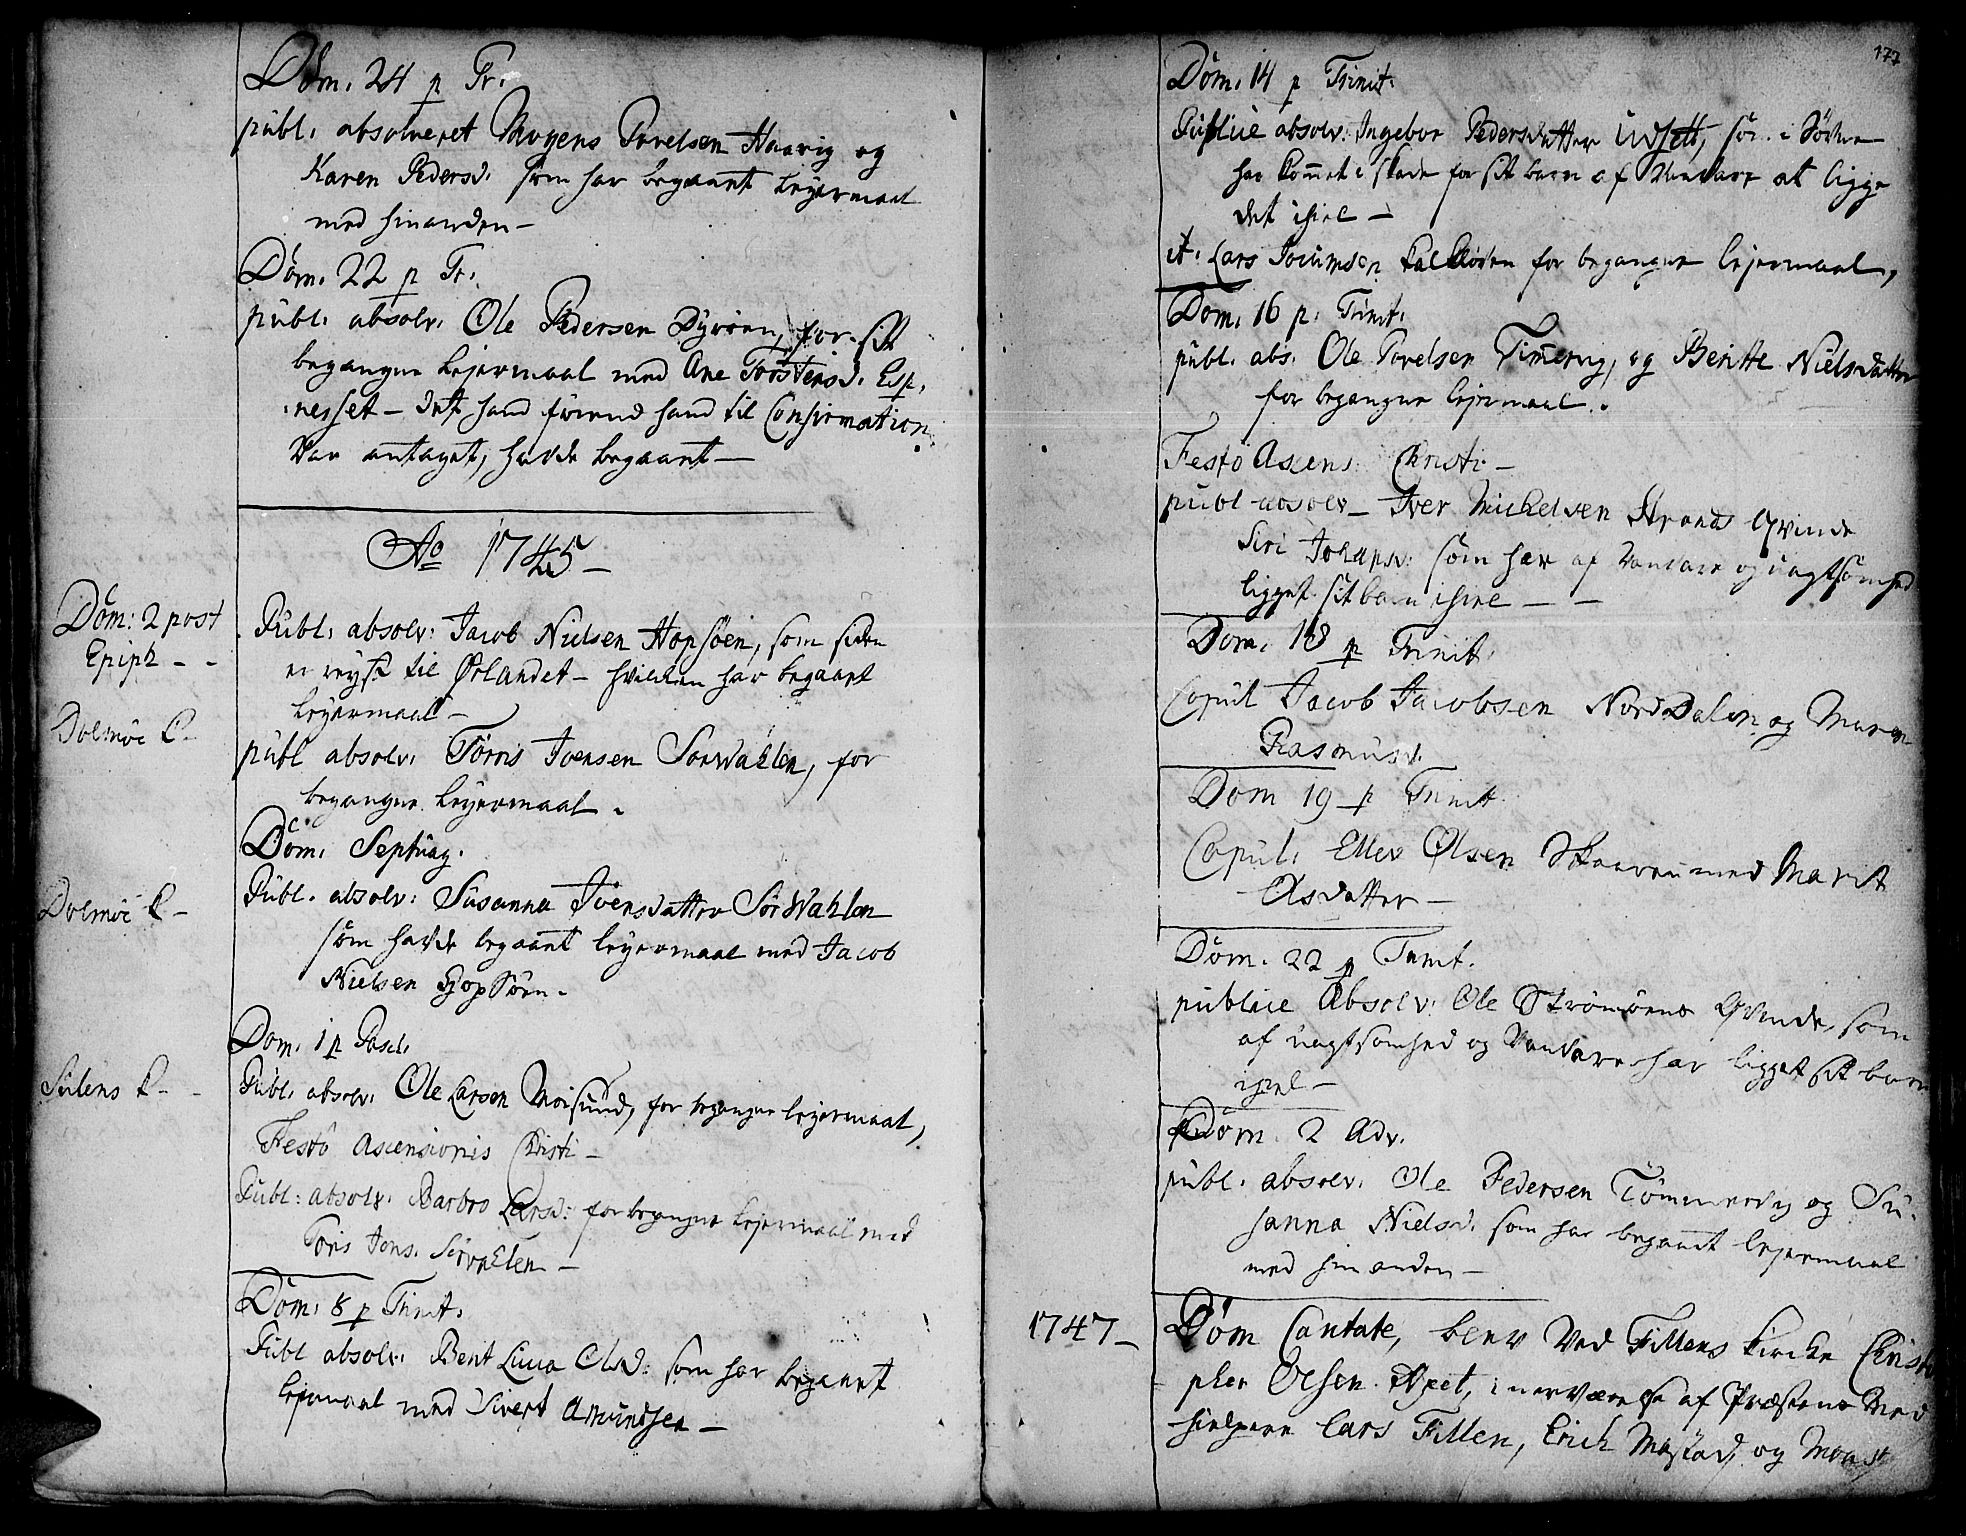 Dom. 24 p Tr.
publ. absolveret Mogens Povelsen Haavig og
Karen Pedersd. som har begaaet leyermaal
med hinanden –
Dom. 22 p Tr.
publ. absolv. Ole Pedersen Dyrøen, for sit
begangne lejermaal med Ane Torstensd. Esp-
nesset – det hand førend hand til Confirmation
var antaget, hafde begaaet –
Ao 1745 –
Dom: 2 post
Epiph – –
Publ. absolv: Jacob Nielsen Hopsøen, som siden
er reyst til Ørlandet – hvilken har begaaet
leyermaal –
Dolmøe C –
publ absolv. Törris Iversen Sørvahlen, for
begangne leyermaal.
Dom. Septuag.
Dolmöe C –
Publ. absolv: Susanna Iversdatter Sørvahlen
som hafde begaaet leyermaal med Jacob
Nielsen Hopsøen.
Dom. 1 p Pasch.
Sulens C – –
Publ. absolv. Ole Larsen Moisund, for begangne leyermaal,
Festo Ascensionis Christi –
Publ: absolv. Barbro Larsd: for begangne lejermaal med
Toris Iens. Sørvahlen –
Dom. 8 p Trinit.
Publ absolv. Bent Olsd: som har begaaet
lejermaal med Sivert Amundsen –
177
Dom. 14 p Trinit.
Publice absolv. Ingebor Pedersdatter Udsett, som i Søvne
har kommet i skade for sit barn af Vanvare at ligge
det ihiel –
it. Lars Joculmsen for begangne lejermaal,
Dom. 16 p. Trinit.
publ. abs. Ole Povelsen Timervig, og Beritte Nielsdatter
for begangne lejermaal.
Festo Ascens: Christi –
publ absolv – Iver Mickelsen Strands Qvinde
Siri Johansd: som har af Vanvare og uagtsomhed
ligget sit barn ihiel – –
Dom. 18 p Trinit.
Copul Jacob Jacobsen NordDalen og Maren
Rasmusd.
Dom 19 p Trinit
Copul. Ellev Olsen med Marit
Olsdatter –
Dom. 22 p Trinit.
publice Absolv: Ole Strømøens Qvinde, som
af uagtsomhed og Vanvare har ligget sit barn
ihiel –
Dom. 2 Adv.
publ. absolv. Ole Pedersen Tömmervig og Su-
sanna Nielsd. som har begaaet lejermaal
med hinanden –
1747 –
Dom Cantate, blev ved Fillens Kircke Christo
pher Olsen i nærværelse af Præstens Med
hielpere Lars Fillen, Erich Mastad, og Mons